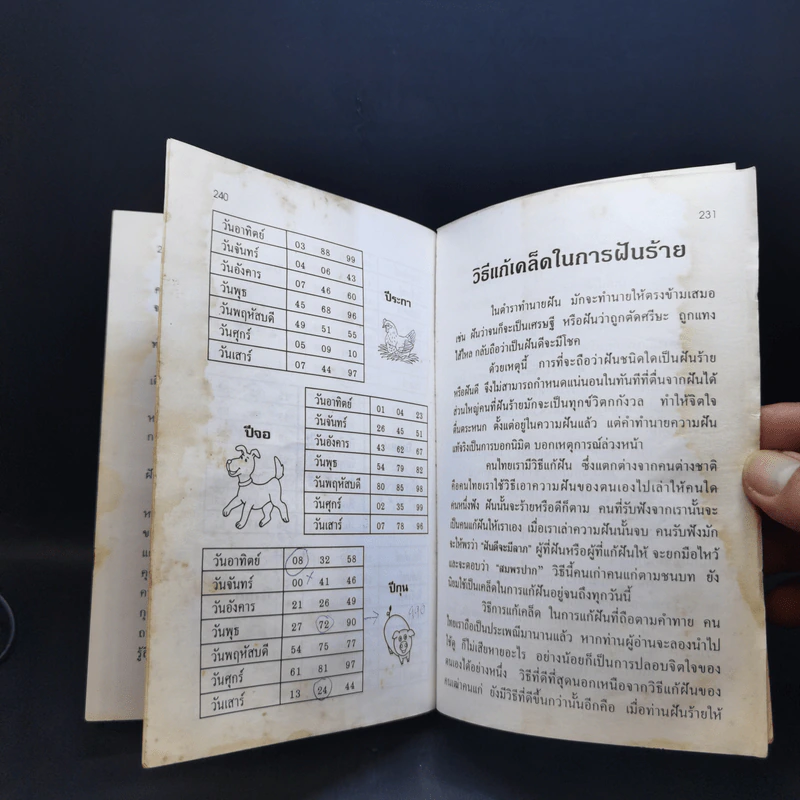 240
วันอาทิตย์ 03 88 99
วันจันทร์ 04 06 43
วันอังคาร 07 46 60
วันพุธ 45 68 96
วันพฤหัสบดี 49 51 55
วันศุกร์ 05 09 10
วันเสาร์ 07 44 97
ปีระกา
วันอาทิตย์ 01 04 22
วันจันทร์ 26 45 51
วันอังคาร 43 62 67
วันพุธ 54 79 82
วันพฤหัสบดี 80 85 98
วันศุกร์ 02 35 99
วันเสาร์ 07 78 96
ปีจอ
วันอาทิตย์ 08 32 58
วันจันทร์ 00 41 46
วันอังคาร 21 26 49
วันพุธ 27 72 90
วันพฤหัสบดี 54 75 77
วันศุกร์ 61 81 97
วันเสาร์ 13 24 44
ปีกุน
231
วิธีแก้เคล็ดในการฝันร้าย
ในตำราทำนายฝัน มักจะทำนายให้ตรงข้ามเสมอ
เช่น ฝันว่าจนก็จะเป็นเศรษฐี หรือฝันว่าถูกตัดศรีษะ ถูกแทง
ไส้ไหล กลับถือว่าเป็นฝันดีจะมีโชค
ด้วยเหตุนี้ การที่จะถือว่าฝันชนิดใดเป็นฝันร้าย
หรือฝันดี จึงไม่สามารถกำหนดแน่นอนในทันทีที่ตื่นจากฝันได้
ส่วนใหญ่คนที่ฝันร้ายมักจะเป็นทุกข์วิตกกังวล ทำให้จิตใจ
ตื่นตระหนก ตั้งแต่อยู่ในความฝันแล้ว แต่คำทำนายความฝัน
แท้จริงเป็นการบอกนิมิต บอกเหตุการณ์ล่วงหน้า
คนไทยเรามีวิธีแก้ฝัน ซึ่งแตกต่างจากคนต่างชาติ
คือคนไทยเราใช้วิธีเอาความฝันของตนเองไปเล่าให้คนใด
คนหนึ่งฟัง ฝันนั้นจะร้ายหรือดีก็ตาม คนที่รับฟังจากเรานั้นจะ
เป็นคนแก้ฝันให้เราเอง เมื่อเราเล่าความฝันนั้นจบ คนรับฟังมัก
จะให้พรว่า "ฝันดีจะมีลาภ" ผู้ที่ฝันหรือผู้ที่แก้ฝันให้ จะยกมือไหว้
และจะตอบว่า "สมพรปาก" วิธีนี้คนเก่าคนแก่ตามชนบท ยัง
นิยมใช้เป็นเคล็ดในการแก้ฝันอยู่จนถึงทุกวันนี้
วิธีการแก้เคล็ด ในการแก้ฝันที่ถือตามคำทาย คน
ไทยเราถือเป็นประเพณีมานานแล้ว หากท่านผู้อ่านจะลองนำไป
ใช้ดู ก็ไม่เสียหายอะไร อย่างน้อยก็เป็นการปลอบจิตใจของ
คนเองได้อย่างหนึ่ง วิธีที่ดีที่สุดนอกเหนือจากวิธีแก้ฝันของ
คนเฒ่าคนแก่ ยังมีวิธีที่ดีขึ้นกว่านั้นอีกคือ เมื่อท่านฝันร้ายให้